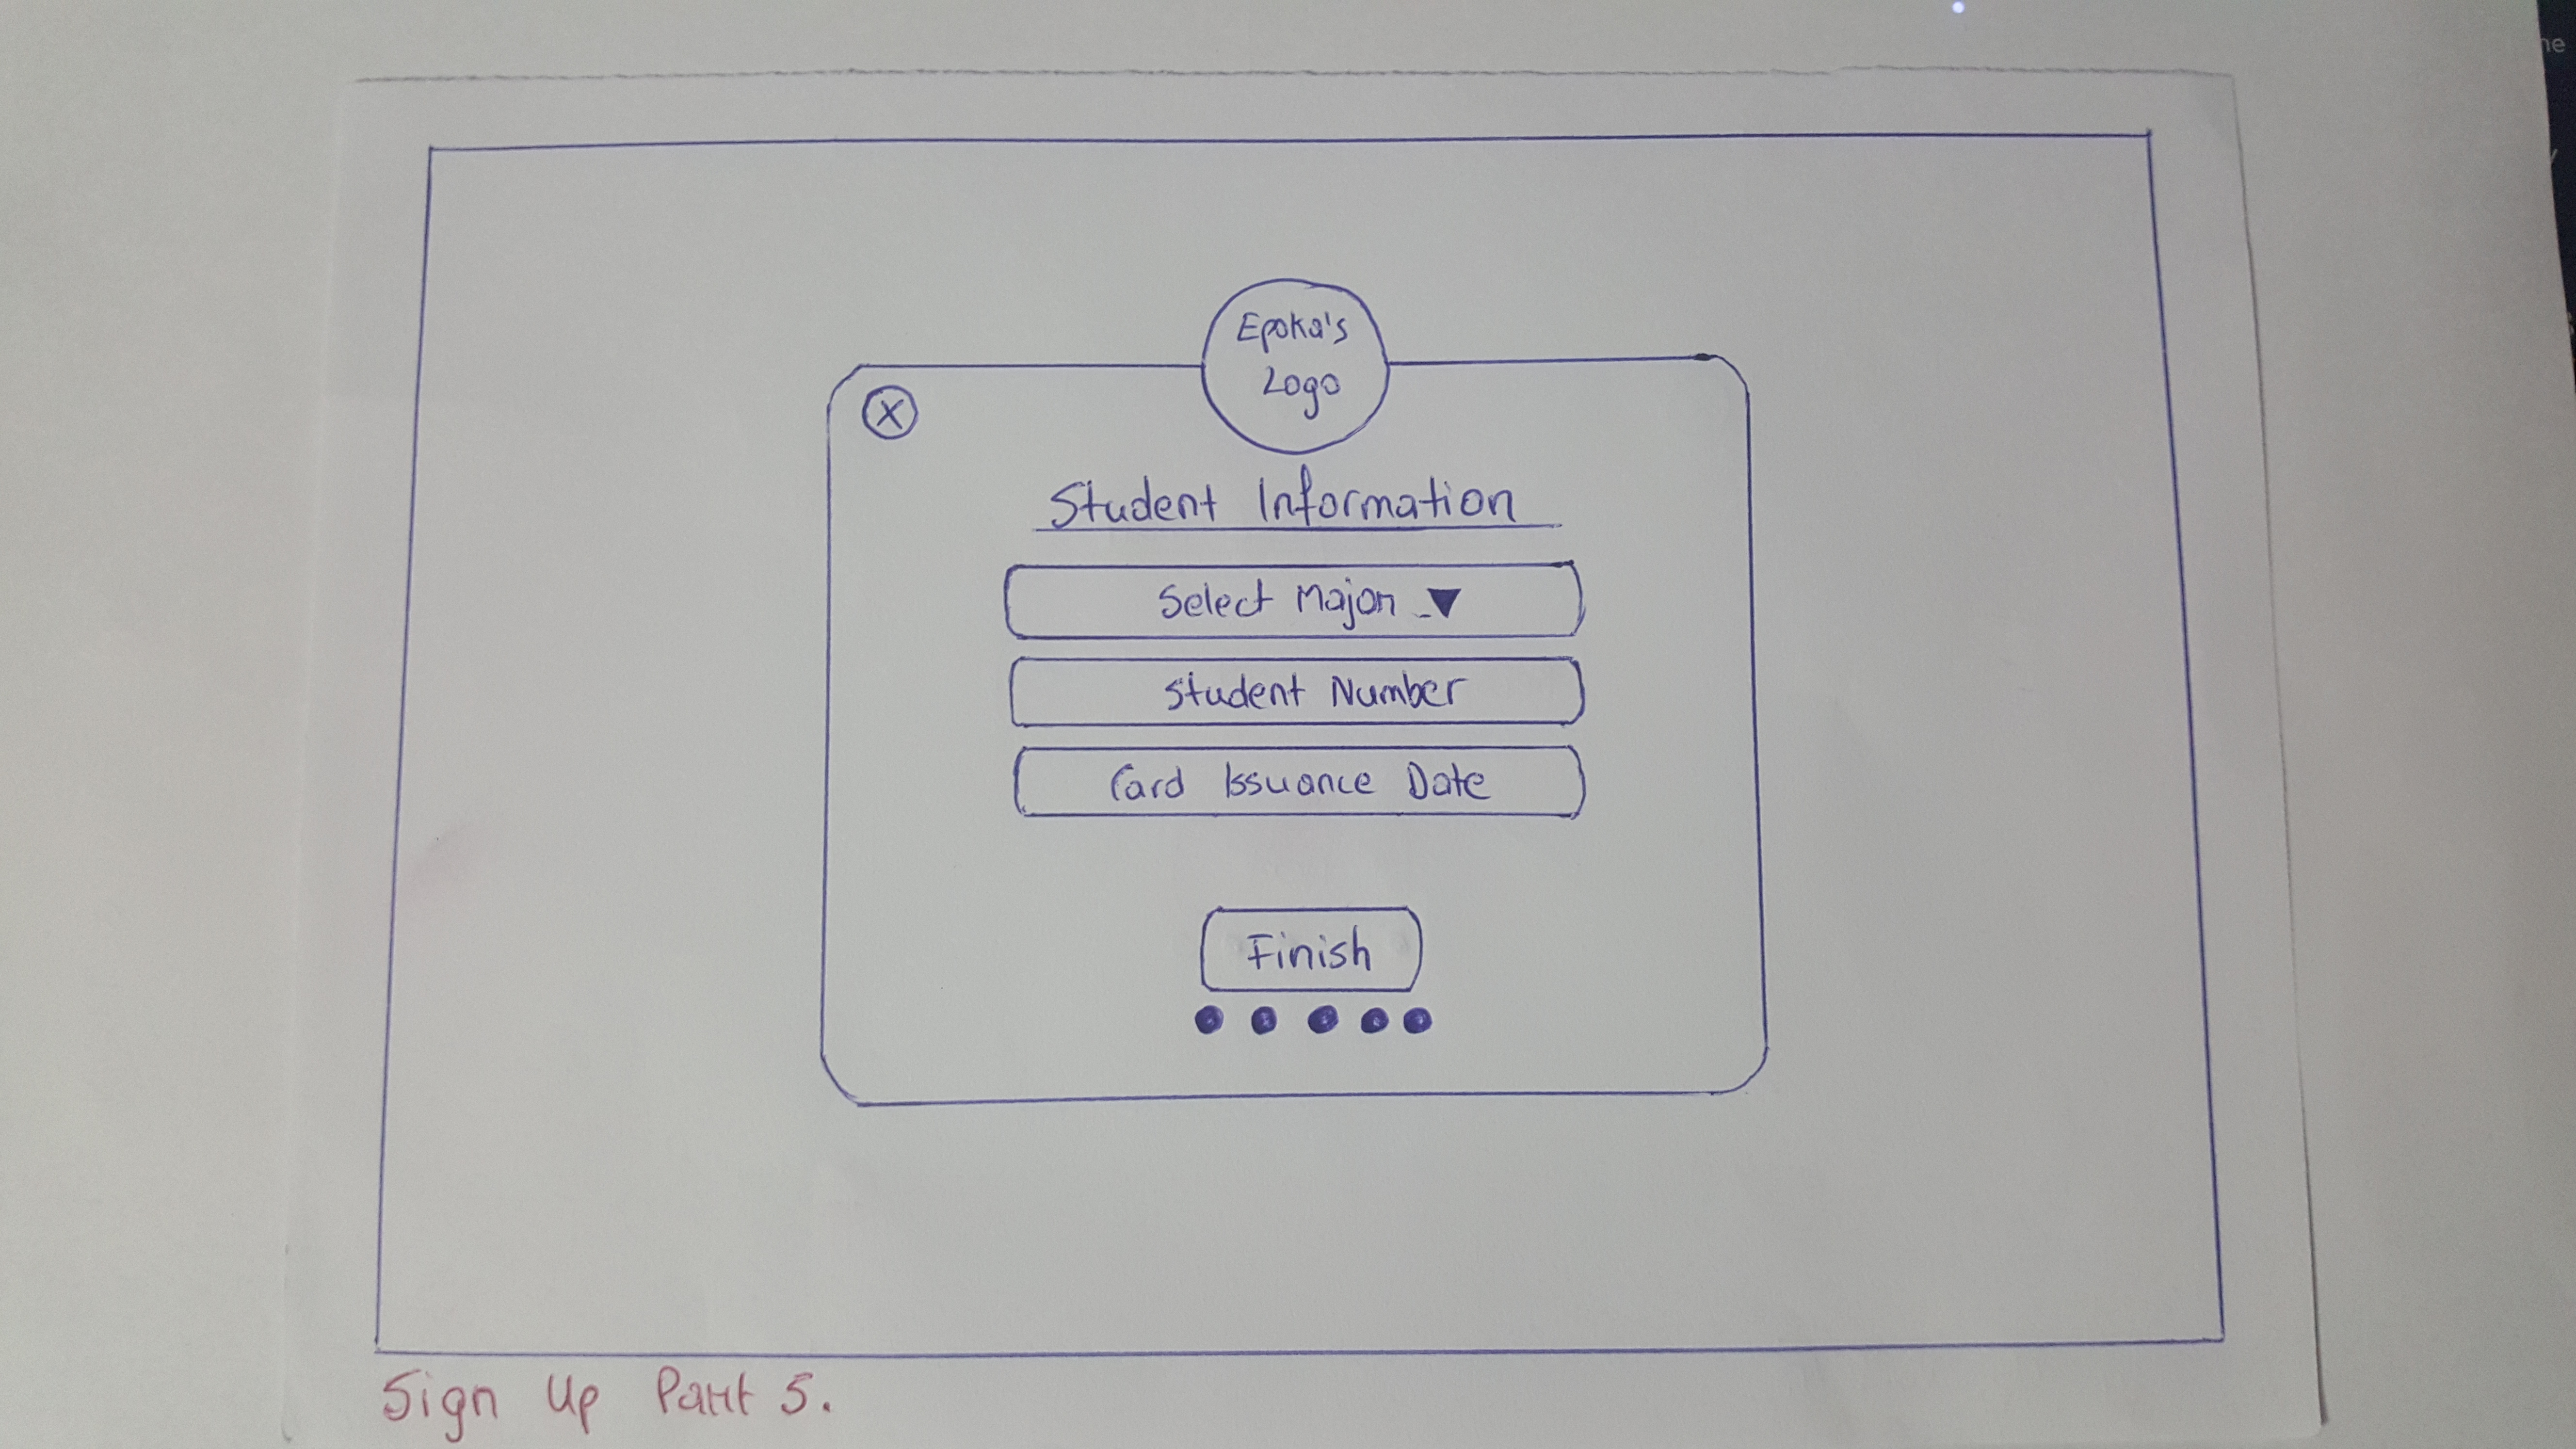 Epoka's
Logo
X
Student Information
Select Major
Student Number
Card Issuance Date
Finish
Sign Up Part 5.